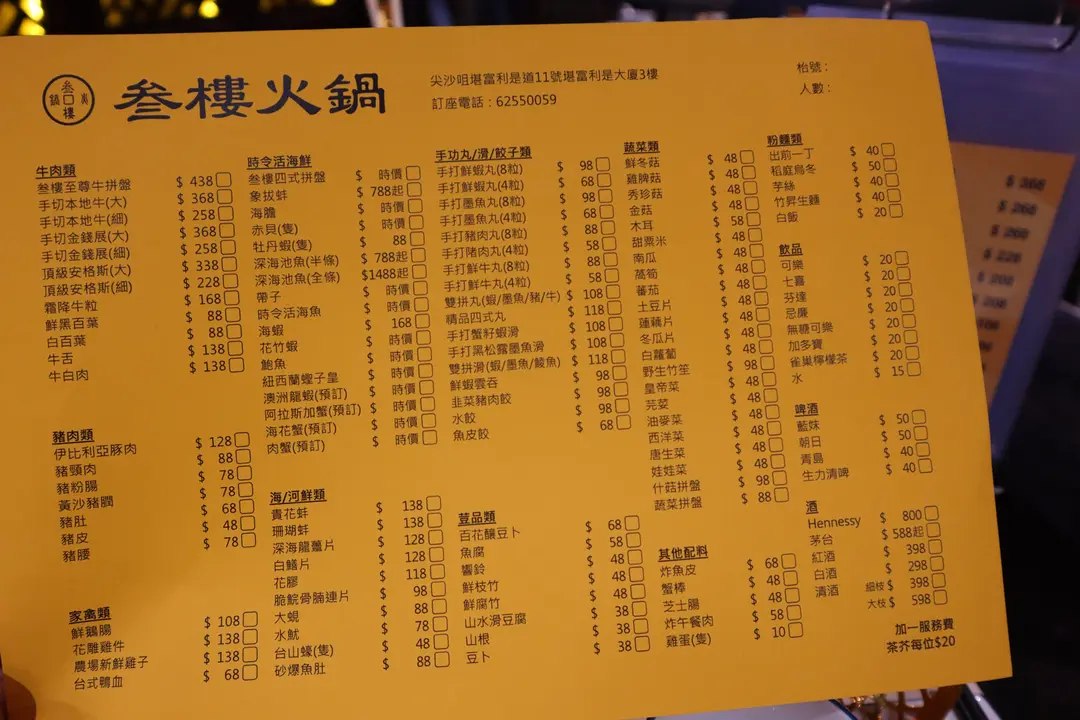 叁樓火鍋
叁樓火鍋
尖沙咀堪富利是道11號堪富利是大廈3樓
訂座電話：62550059
枱號：
人數：
牛肉類
叁樓至尊牛拼盤 $ 438
手切本地牛(大) $ 368
手切本地牛(細) $ 258
手切金錢展(大) $ 368
手切金錢展(細) $ 258
頂級安格斯(大) $ 338
頂級安格斯(細) $ 228
霜降牛粒 $ 168
鮮黑百葉 $ 88
白百葉 $ 88
牛舌 $ 138
牛白肉 $ 138
豬肉類
伊比利亞豚肉 $ 128
豬頸肉 $ 88
豬粉腸 $ 78
黃沙豬膶 $ 78
豬肚 $ 68
豬皮 $ 48
豬腰 $ 78
家禽類
鮮鵝腸 $ 108
花雕雞件 $ 138
農場新鮮雞子 $ 138
台式鴨血 $ 68
時令活海鮮
叁樓四式拼盤 $ 時價
象拔蚌 $ 788起
海膽 $ 時價
赤貝(隻) $ 時價
牡丹蝦(隻) $ 88
深海池魚(半條) $ 788起
深海池魚(全條) $1488起
帶子 $ 時價
時令活海魚 $ 時價
海蝦 $ 168
花竹蝦 $ 時價
鮑魚 $ 時價
紐西蘭蟶子皇 $ 時價
澳洲龍蝦(預訂) $ 時價
阿拉斯加蟹(預訂) $ 時價
海花蟹(預訂) $ 時價
肉蟹(預訂) $ 時價
海/河鮮類
貴花蚌 $ 138
珊瑚蚌 $ 138
深海龍躉片 $ 128
白鱔片 $ 128
花膠 $ 118
脆鯇骨腩連片 $ 98
大蜆 $ 88
水魷 $ 78
台山蠔(隻) $ 48
砂爆魚肚 $ 88
手功丸/滑/餃子類
手打鮮蝦丸(8粒) $ 98
手打鮮蝦丸(4粒) $ 68
手打墨魚丸(8粒) $ 98
手打墨魚丸(4粒) $ 68
手打豬肉丸(8粒) $ 88
手打豬肉丸(4粒) $ 58
手打鮮牛丸(8粒) $ 88
手打鮮牛丸(4粒) $ 58
雙拼丸(蝦/墨魚/豬/牛) $ 108
精品四式丸 $ 118
手打蟹籽蝦滑 $ 108
手打黑松露墨魚滑 $ 108
雙拼滑(蝦/墨魚/鯪魚) $ 118
鮮蝦雲吞 $ 98
韭菜豬肉餃 $ 98
水餃 $ 98
魚皮餃 $ 68
葷品類
百花釀豆卜 $ 68
魚腐 $ 58
響鈴 $ 48
鮮枝竹 $ 48
鮮腐竹 $ 48
山水滑豆腐 $ 38
山根 $ 38
豆卜 $ 38
蔬菜類
鮮冬菇 $ 48
雞脾菇 $ 48
秀珍菇 $ 48
金菇 $ 48
木耳 $ 58
甜粟米 $ 48
南瓜 $ 48
萵筍 $ 48
蕃茄 $ 48
土豆片 $ 48
蓮藕片 $ 48
冬瓜片 $ 48
白蘿蔔 $ 48
野生竹笙 $ 98
皇帝菜 $ 48
芫荽 $ 48
油麥菜 $ 48
西洋菜 $ 48
唐生菜 $ 48
娃娃菜 $ 48
什菇拼盤 $ 98
蔬菜拼盤 $ 88
其他配料
炸魚皮 $ 68
蟹棒 $ 48
芝士腸 $ 48
炸午餐肉 $ 58
雞蛋(隻) $ 10
粉麵類
出前一丁 $ 40
稻庭烏冬 $ 50
芋絲 $ 40
竹昇生麵 $ 40
白飯 $ 20
飲品
可樂 $ 20
七喜 $ 20
芬達 $ 20
忌廉 $ 20
無糖可樂 $ 20
加多寶 $ 20
雀巢檸檬茶 $ 20
水 $ 15
啤酒
藍妹 $ 50
朝日 $ 50
青島 $ 40
生力清啤 $ 40
酒
Hennessy $ 800
茅台 $ 588起
紅酒 $ 398
白酒 $ 298
清酒 細枝 $ 398
大枝 $ 598
加一服務費
茶芥每位$20